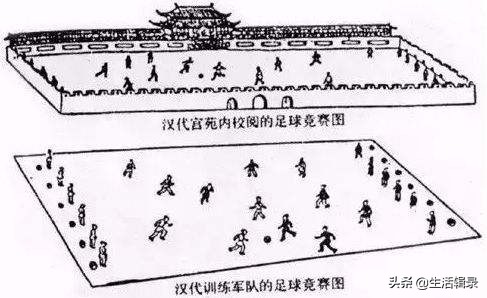 汉代宫苑内校阅的足球竞赛图
汉代训练军队的足球竞赛图
头条 @生活辑录